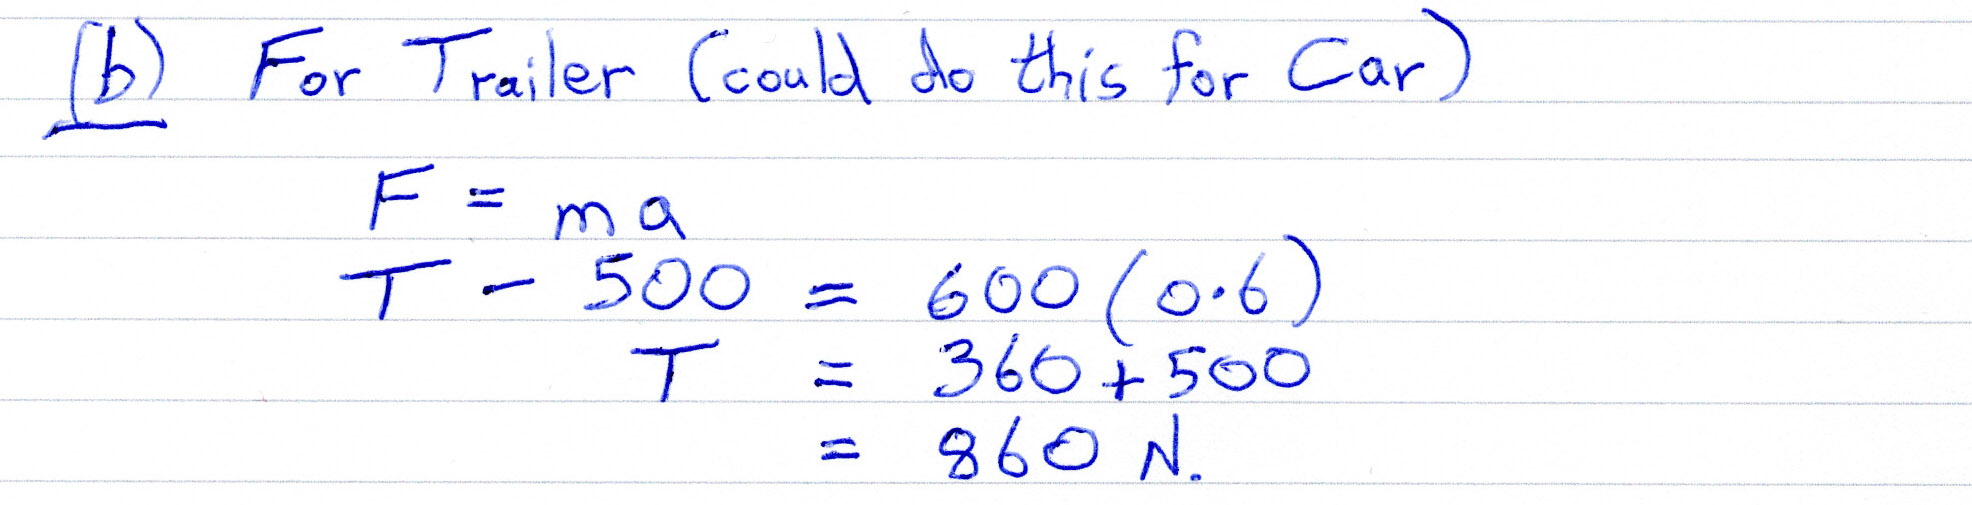 (b) For Trailer (could do this for Car)
F = ma
T - 500 = 600 (0.6)
T = 360 + 500
= 860 N.